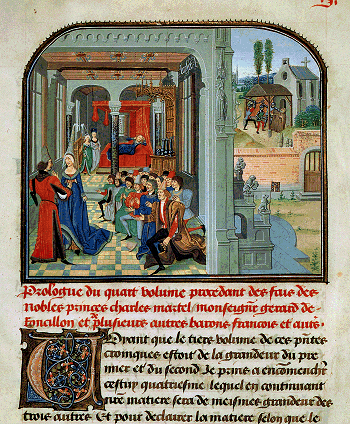 Prologue du quart volume procedant des fais des
nobles princes charles martel monseigneur gerard de
Roncillon et plusieurs autres barons francois et autres
Durant que le tiers volume de ces presentes
croniques estoit de la grandeur du pre
mier et du second Je prins a encommencher
cestuy quatriesme lequel en continuant
matiere sera de mesmes grandeur des
trois autres Et pour declarer la matiere selon que le